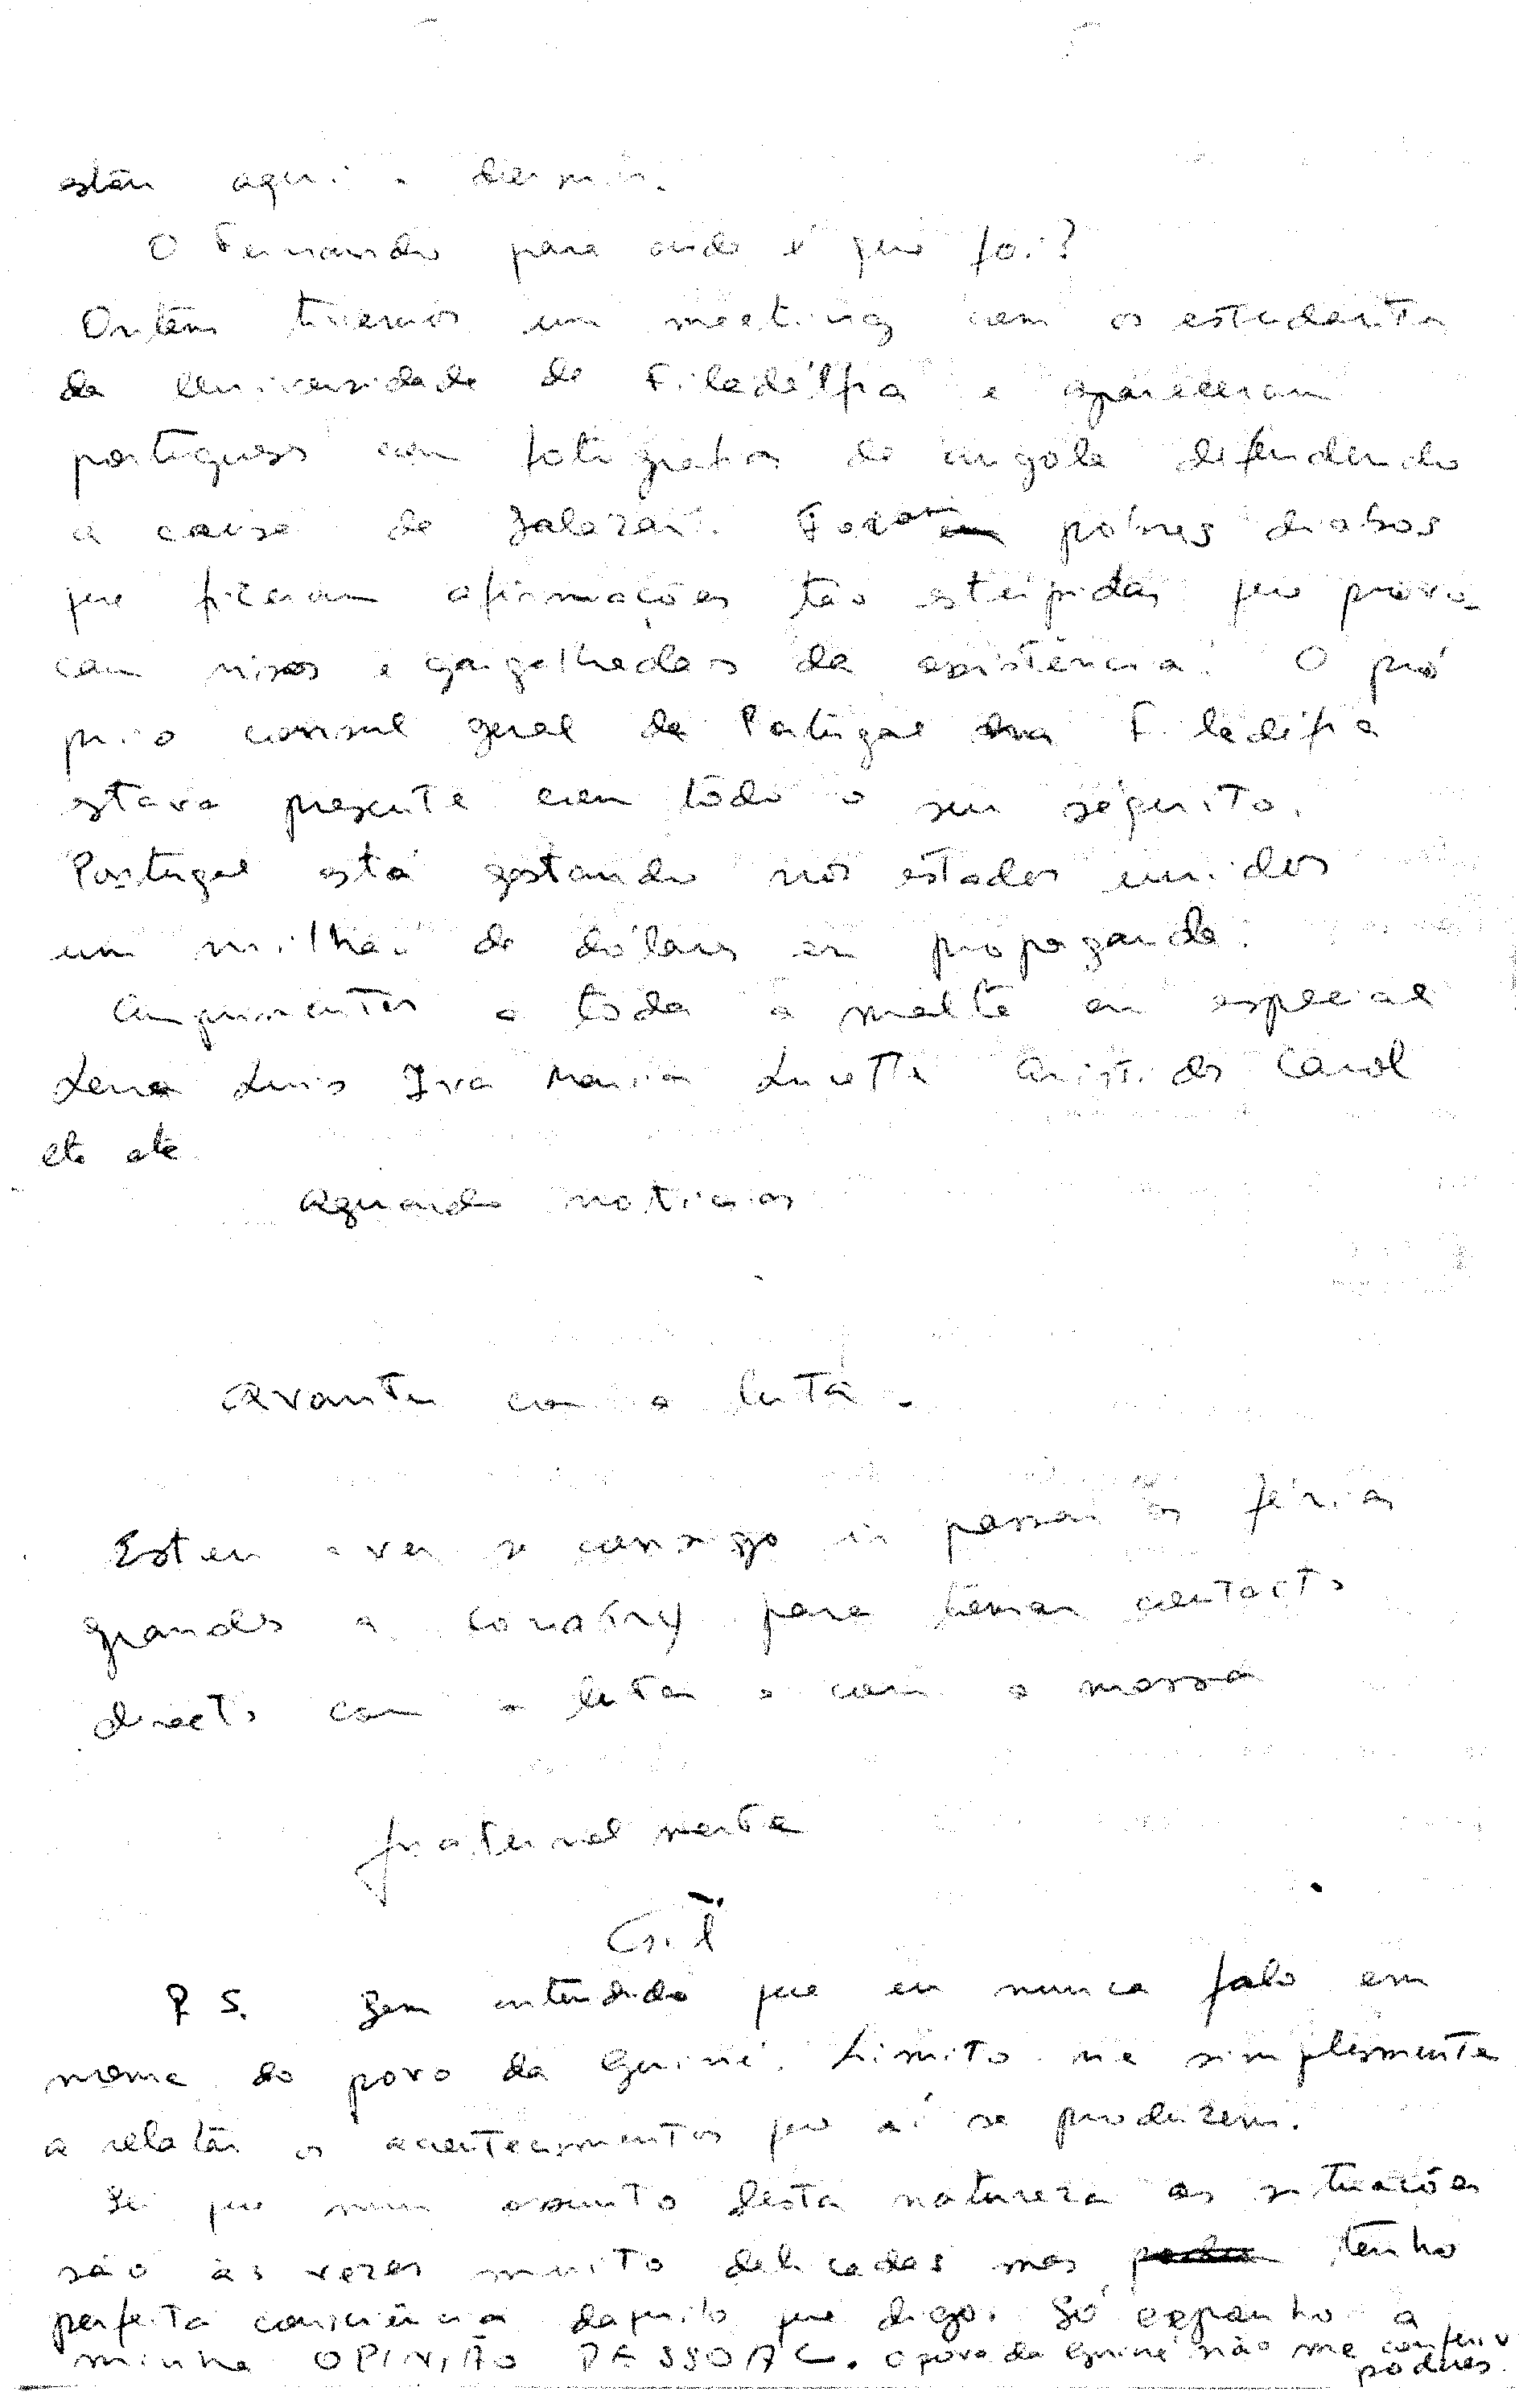 estão aqui a dormir.
O Fernando para onde é que foi?
Ontém tivemos um meeting com os estudantes
da Universidade de Filadélfia e apareceram
portugueses com fotografias de angola defendendo
a causa de Salazar. Foram pobres diabos
que fizeram afirmações tão estúpidas que provo-
cam risos e gargalhadas da assistência. O pró
prio consul geral de Portugal na Filadélfia
estava presente com tôdo o seu séquito.
Portugal está gastando nos estados unidos
um milhão de dólares em propaganda.
Cumprimentos a toda a malta em especial
Lena Luis Iva Maria Lucette Aristides Carol
etc etc
Aguardo noticias
Avante com a luta.
Estou a ver se consigo ir passar as férias
grandes a Conakry para tomar contacto
directo com a luta e com a massa
fraternalmente
Gil
P S. Bem entendido que eu nunca falo em
nome do povo da Guiné. Limito me simplesmente
a relatar os acontecimentos que aí se produzem.
Sei que num assunto desta natureza as situações
são às vezes muito delicadas mas tenho
perfeita consciência daquilo que digo. Só exponho a
minha OPINIÃO PESSOAL. O povo da Guiné não me conferiu
poderes.